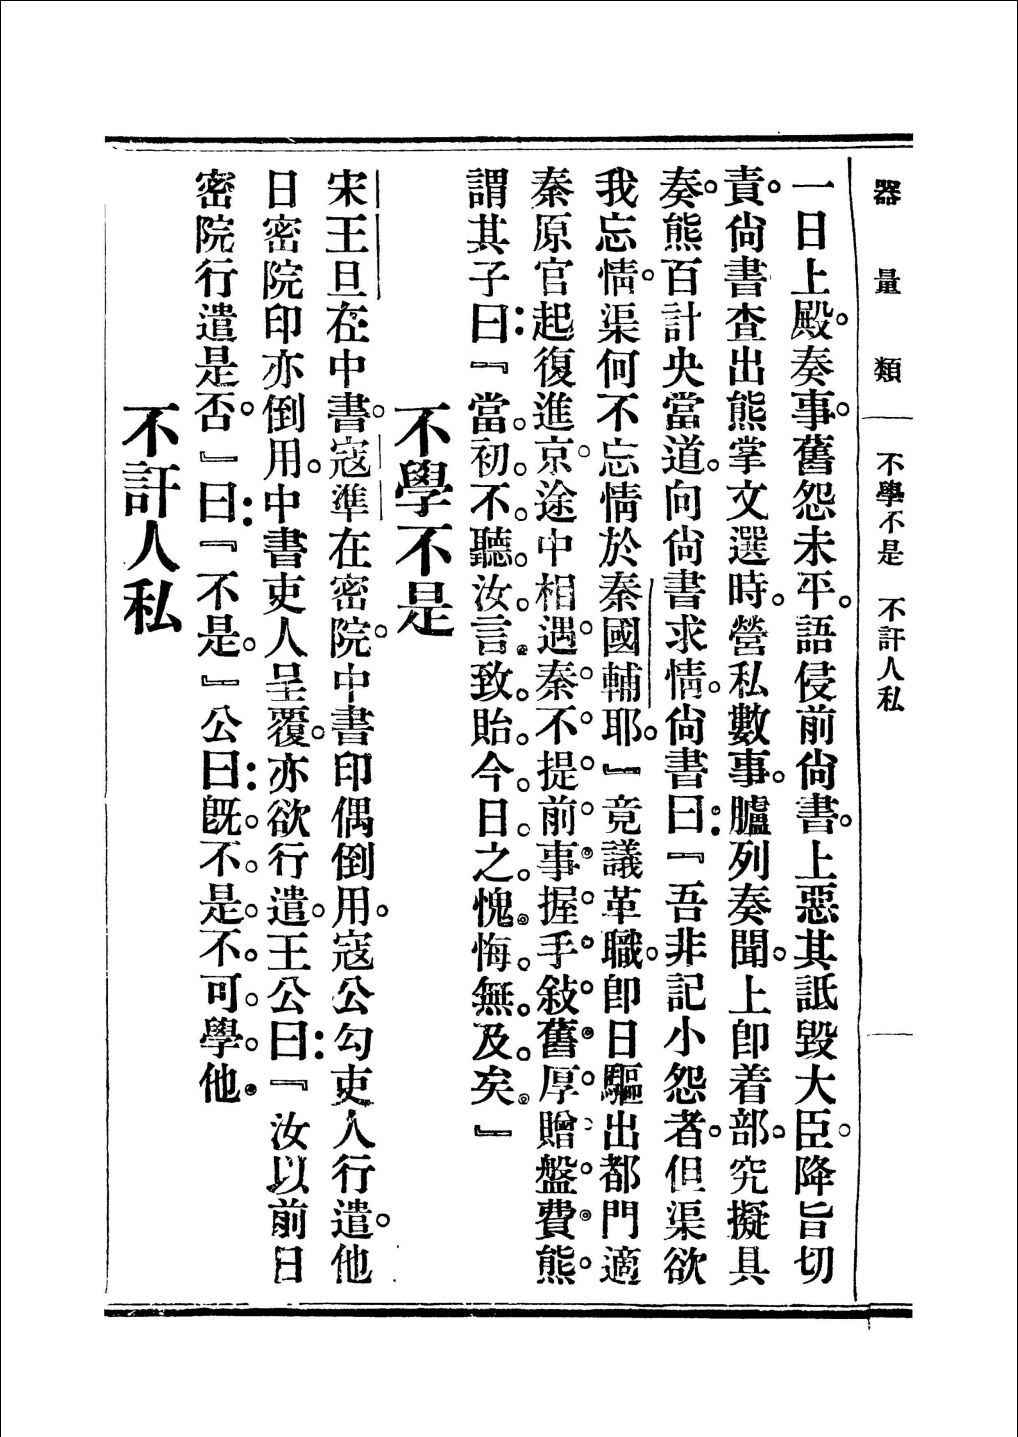 器量類 不學不是 不訐人私
一日上殿。奏事。舊怨未平。語侵前尙書。上惡其詆毀大臣。降旨切
責。尙書查出熊掌文選時。營私數事。臚列奏聞。上卽着部。究擬具
奏。熊百計央當道。向尙書求情。尙書曰：『吾非記小怨者。但渠欲
我忘情。渠何不忘情於秦國輔耶。』竟議革職。卽日驅出都門適
秦原官起復進京。途中相遇。秦不提前事。握手敍舊。厚贈盤費。熊
謂其子曰：『當初不聽汝言。致貽今日之愧悔無及矣。』
不學不是
宋王旦在中書。寇準在密院。中書印偶倒用。寇公勾吏人行遣。他
日密院印亦倒用。中書吏人呈覆。亦欲行遣。王公曰：『汝以前日
密院行遣是否。』曰：『不是。』公曰：旣不是。不可學他。
不訐人私